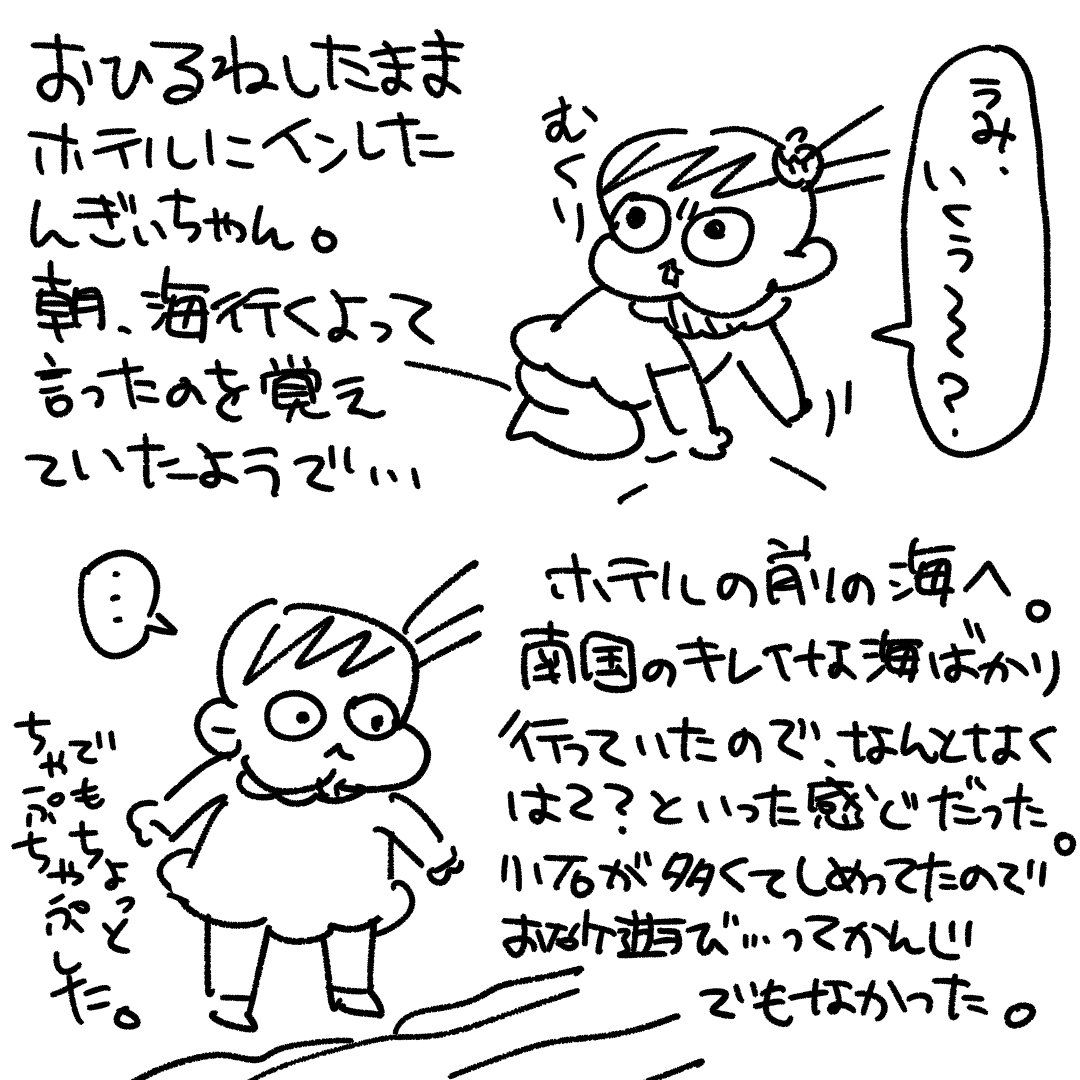 おひるねしたまま
ホテルにインした
んぎぃちゃん。
朝、海行くよって
言ったのを覚え
ていたようで…
むくり
うみ、
いくぅ〜〜?
ホテルの前の海へ。
南国のキレイな海ばかり
行っていたので、なんとなく
は?？といった感じだった。
小石が多くてしめってたので
お砂遊び…ってかんじ
でもなかった。
…
でもちょっと
ちゃぷちゃぷした。